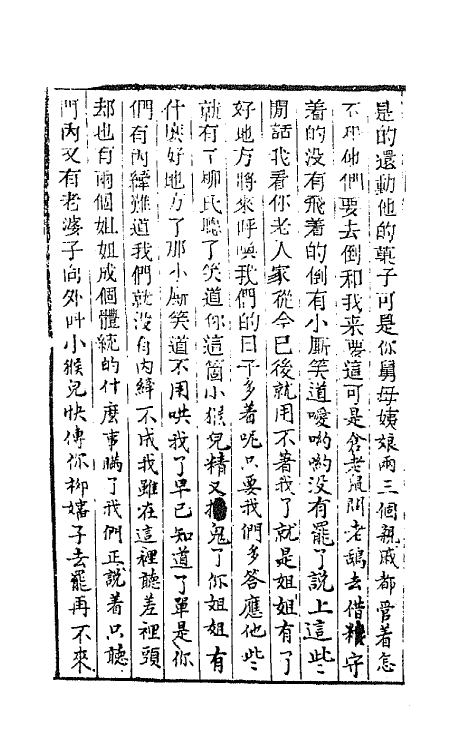 是的還動他的菓子可是你舅母姨娘兩三個親戚都管着怎
不和他們要去倒和我来要這可是倉老鼠問老鴰去借粮守
着的没有飛着的倒有小厮笑道噯喲喲没有罷了說上這些
閒話我看你老人家從今已後就用不著我了就是姐姐有了
好地方將來呼喚我們的日子多着呢只要我們多答應他些
就有了柳氏聽了笑道你這箇小猴兒精又搗鬼了你姐姐有
什麽好地方了那小厮笑道不用哄我了早已知道了單是你
們有內縴難道我們就没有內縴不成我雖在這裡聽差裡頭
却也有兩個姐姐成個體統的什麽事瞞了我們正說着只聽
門內又有老婆子向外叫小猴兒快傳你柳嬸子去罷再不來